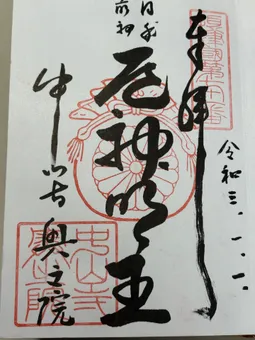 奉拝
令和三.一.一.
日本
前神
厄神明王
中山寺
奥之院